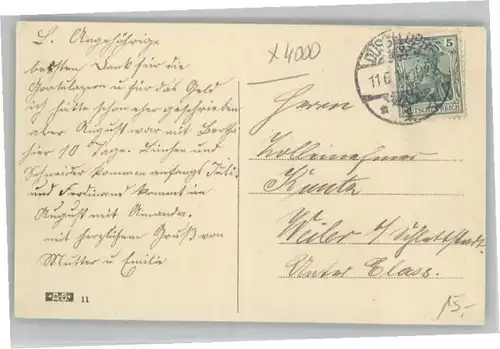 L. Angehörige
besten Dank für die
Gratulazion u für das Geld
ich hätte schon eher geschrieben
aber August war mit Berth
hier 10 Tage. Linchen und
Schneider kommen anfangs Juli
und Ferdinand kommt im
August mit Amanda.
mit herzlichem Gruß von
Mutter u Emilie
11
x 4000
5
DEUTSCHES REICH
Herrn
Zolleinnehmer
Kuntz
Weiler b/ Schlettstadt
Unter Elsass.
15.-